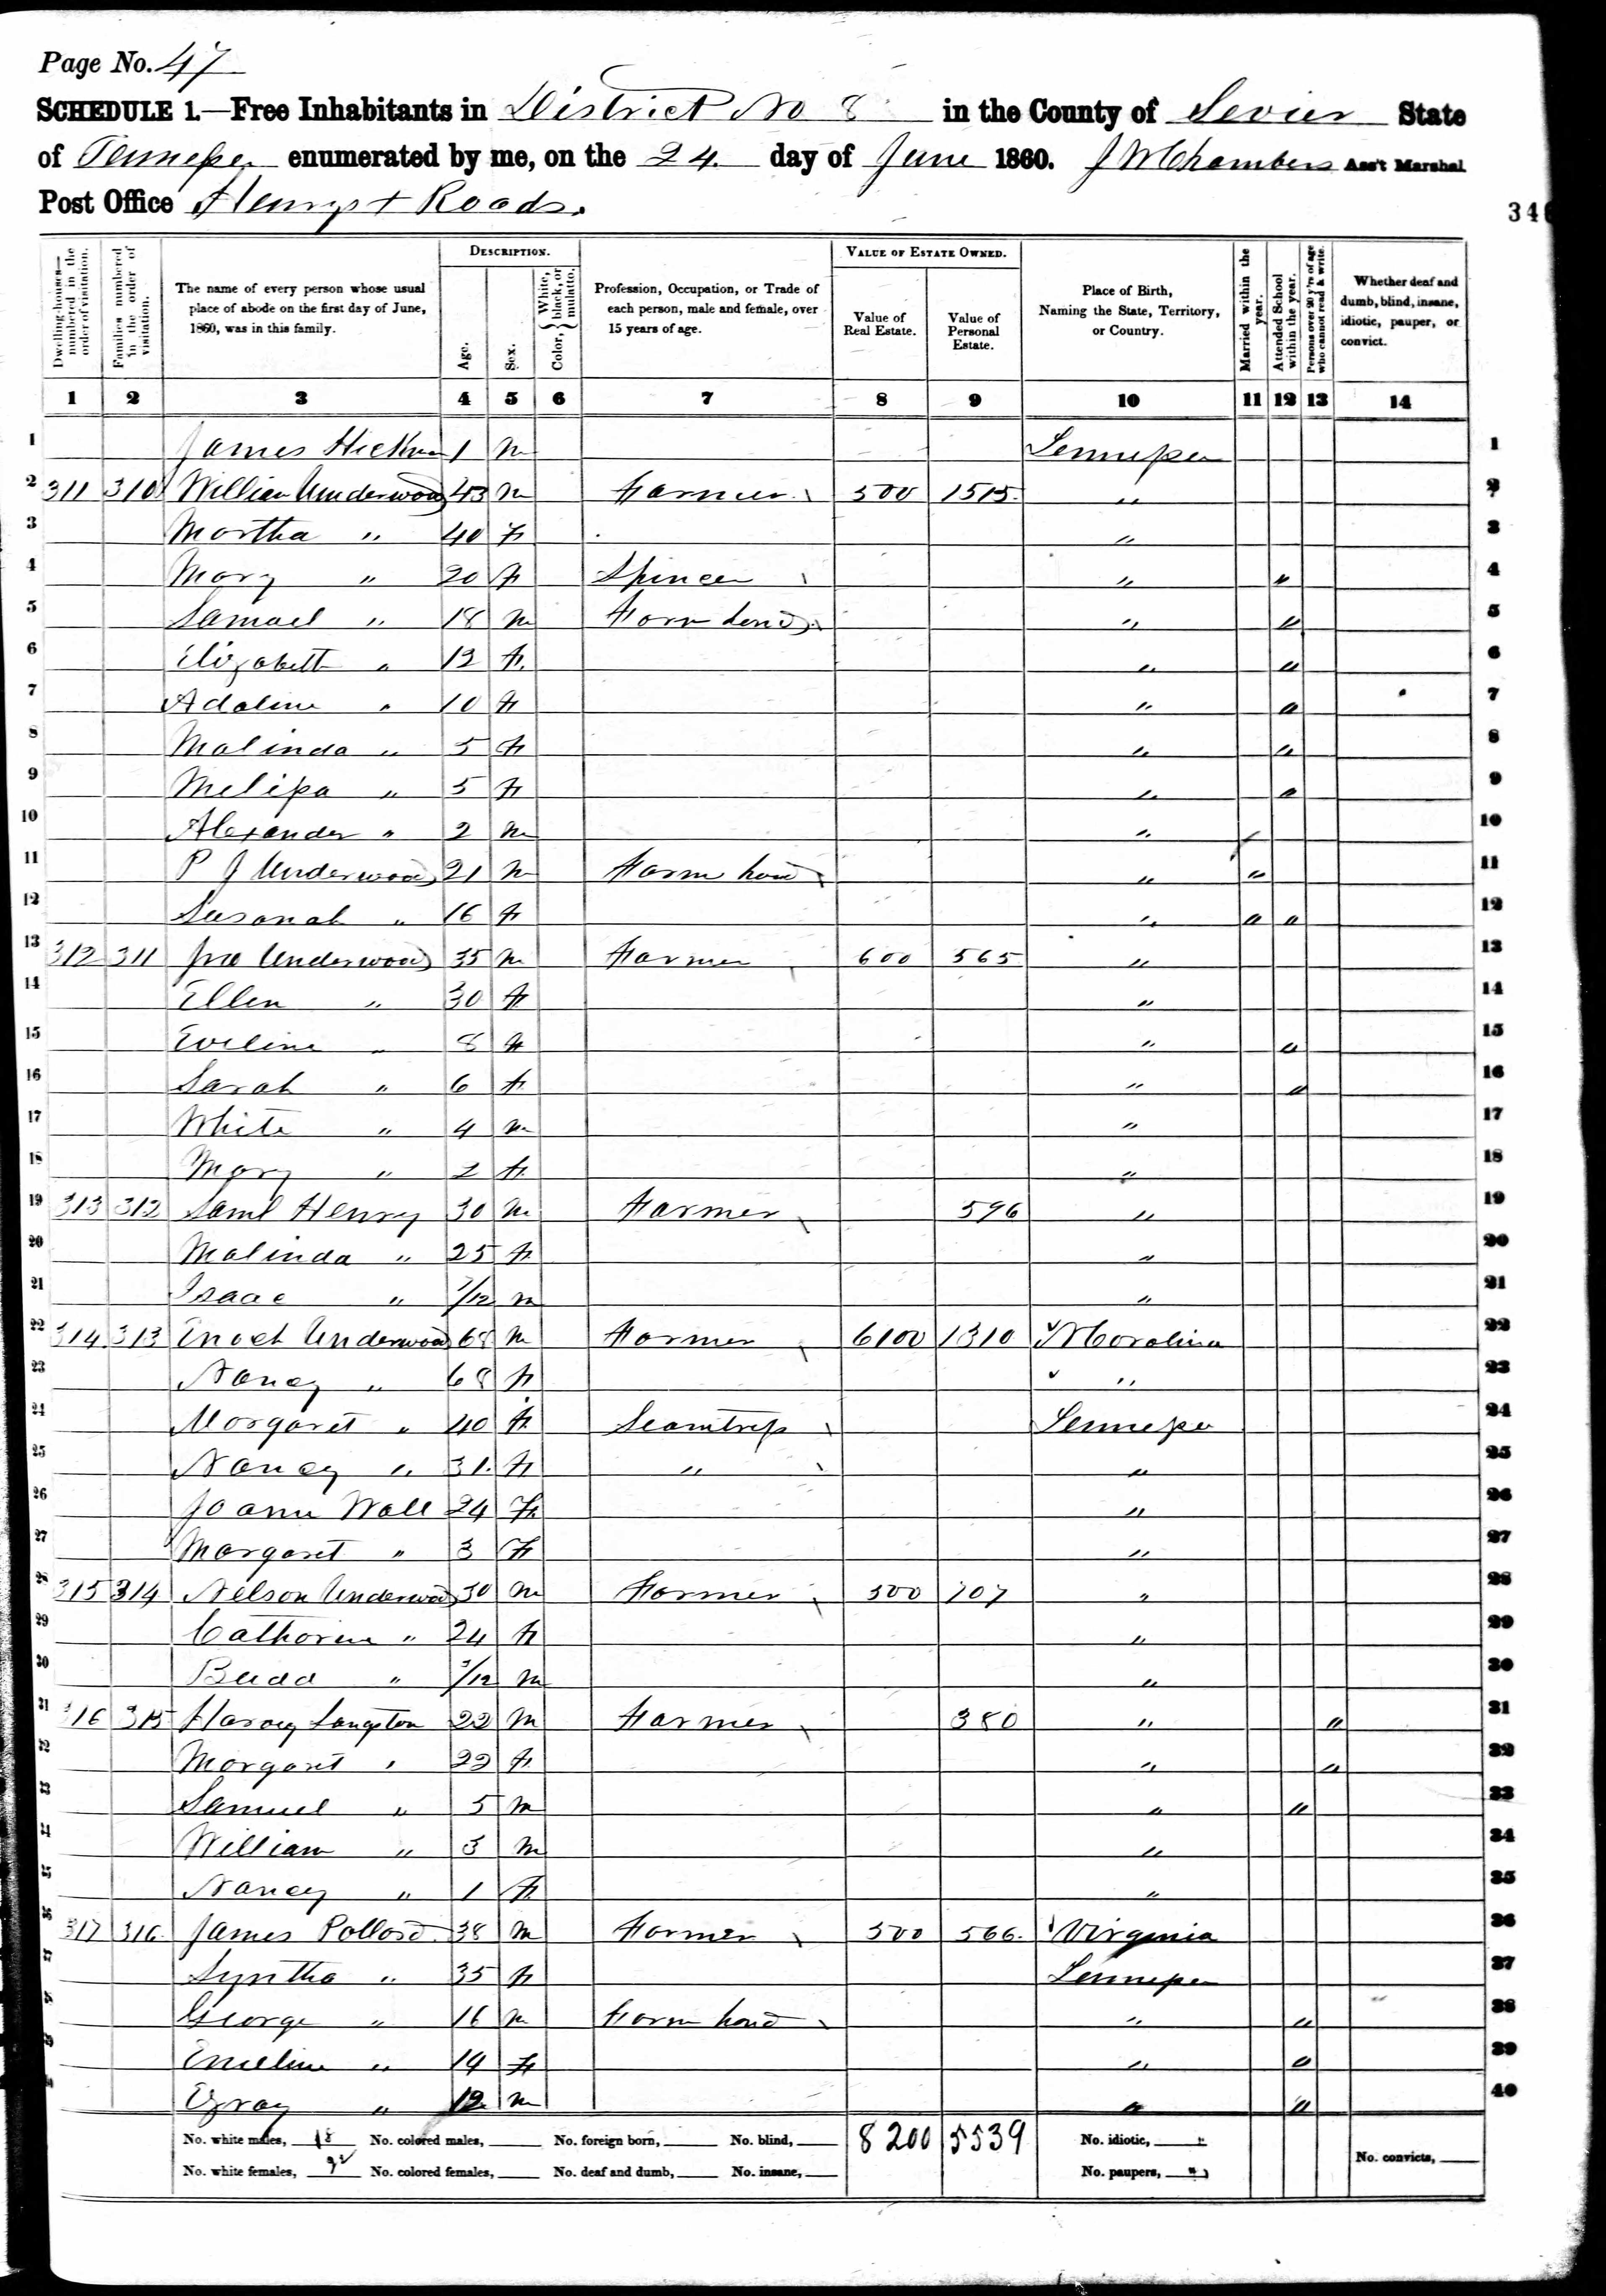 Page No. 47
SCHEDULE 1.—Free Inhabitants in District No 8 in the County of Sevier State
of Tennessee enumerated by me, on the 24 day of June 1860. J W Chambers Ass't Marshal
Post Office Henrys + Roads.
346
Dwelling-houses—numbered in the order of visitation.
Families numbered in the order of visitation.
The name of every person whose usual place of abode on the first day of June, 1860, was in this family.
DESCRIPTION.
Age.
Sex.
Color, White, black, or mulatto.
Profession, Occupation, or Trade of each person, male and female, over 15 years of age.
VALUE OF ESTATE OWNED.
Value of Real Estate.
Value of Personal Estate.
Place of Birth, Naming the State, Territory, or Country.
Married within the year.
Attended School within the year.
Persons over 20 y'rs of age who cannot read & write.
Whether deaf and dumb, blind, insane, idiotic, pauper, or convict.
1 2 3 4 5 6 7 8 9 10 11 12 13 14
1 James Hickman 1 m Tennessee 1
2 311 310 William Underwood 43 m Farmer 500 1515 " 2
3 Martha " 40 f " 3
4 Mary " 20 f Spincer " " 4
5 Samuel " 18 m Farm hand " " 5
6 Elizabeth " 12 f " " 6
7 Adaline " 10 f " " 7
8 Malinda " 5 f " " 8
9 Melissa " 5 f " " 9
10 Alexander " 2 m " 10
11 P J Underwood 21 m Farm hand " " 11
12 Susanah " 16 f " " " 12
13 312 311 Jno Underwood 35 m Farmer 600 565 " 13
14 Ellen " 30 f " 14
15 Eveline " 8 f " " 15
16 Sarah " 6 f " " 16
17 White " 4 m " 17
18 Mary " 2 f " 18
19 313 312 Saml Henry 30 m Farmer 596 " 19
20 Malinda " 25 f " 20
21 Isaac " /12 m " 21
22 314 313 Enoch Underwood 68 m Farmer 6100 1310 N Carolina 22
23 Nancy " 68 f " 23
24 Margaret " 40 f Seamtress Tennessee 24
25 Nancy " 31 f " " 25
26 Joann Wall 24 f " 26
27 Margaret " 3 f " 27
28 315 314 Nelson Underwood 30 m Farmer 500 707 " 28
29 Catharine " 24 f " 29
30 Budd " /12 m " 30
31 316 315 Harvey Langston 22 m Farmer 380 " " 31
32 Margaret " 22 f " " 32
33 Samuel " 5 m " " 33
34 William " 3 m " 34
35 Nancy " 1 f " 35
36 317 316 James Pollard 38 m Farmer 500 566 Virginia 36
37 Syntha " 35 f Tennessee 37
38 George " 16 m Farm hand " " 38
39 Emeline " 14 f " " 39
" 12 m " " 40
No. white males, 18 No. colored males, No. foreign born, No. blind, 8200 5539 No. idiotic,
No. white females, 22 No. colored females, No. deaf and dumb, No. insane, No. paupers, No. convicts,